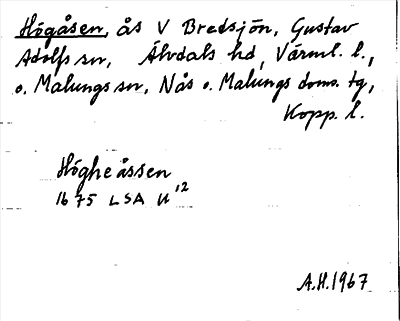 Högåsen, ås V Bredsjön, Gustav
Adolfs sn, Älvdals hd, Värml. l.,
o. Malungs sn, Nås o. Malungs doms. tg,
Kopp. l.
Högheåssen
1675 LSA U 12
A.H. 1967